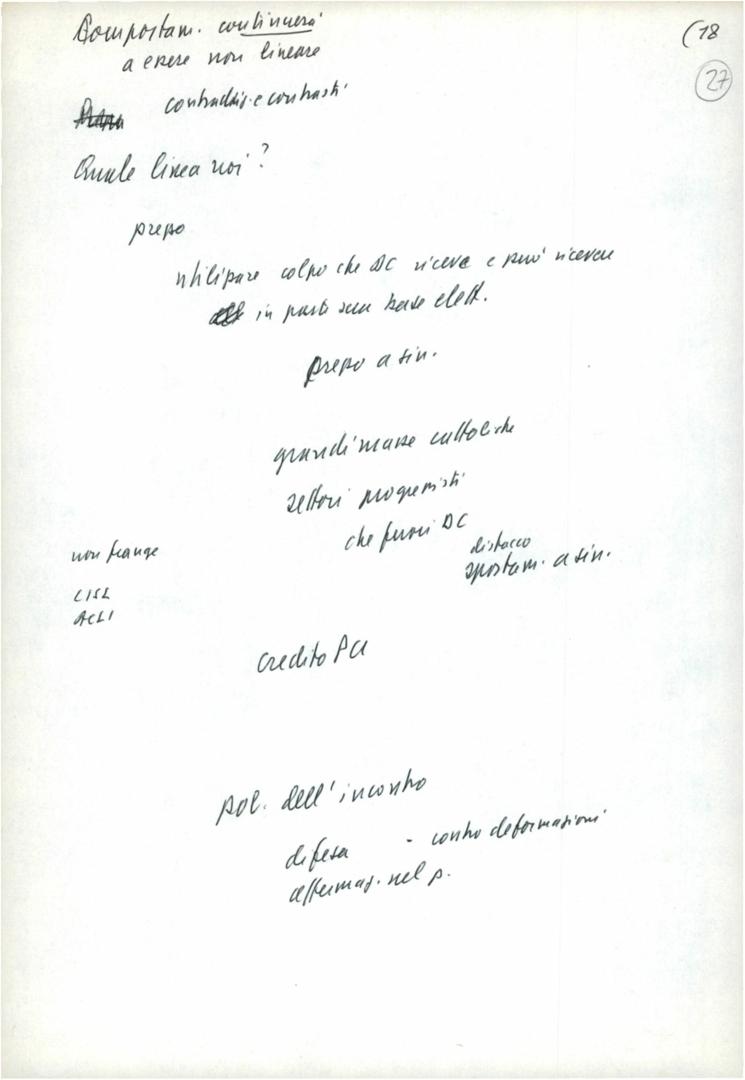 (18
27
Comportam. continuerà
a essere non lineare
contraddiz. e contrasti
Quale linea noi?
presso
utilizzare colpo che DC riceve e può ricevere
in parti sua base elett.
presso a sin.
grandi masse cattoliche
settori progressisti
che fuori DC
non frange
distacco
spostam. a sin.
CISL
ACLI
credito PCI
pol. dell'incontro
difesa - contro deformazioni
affermaz. nel p.